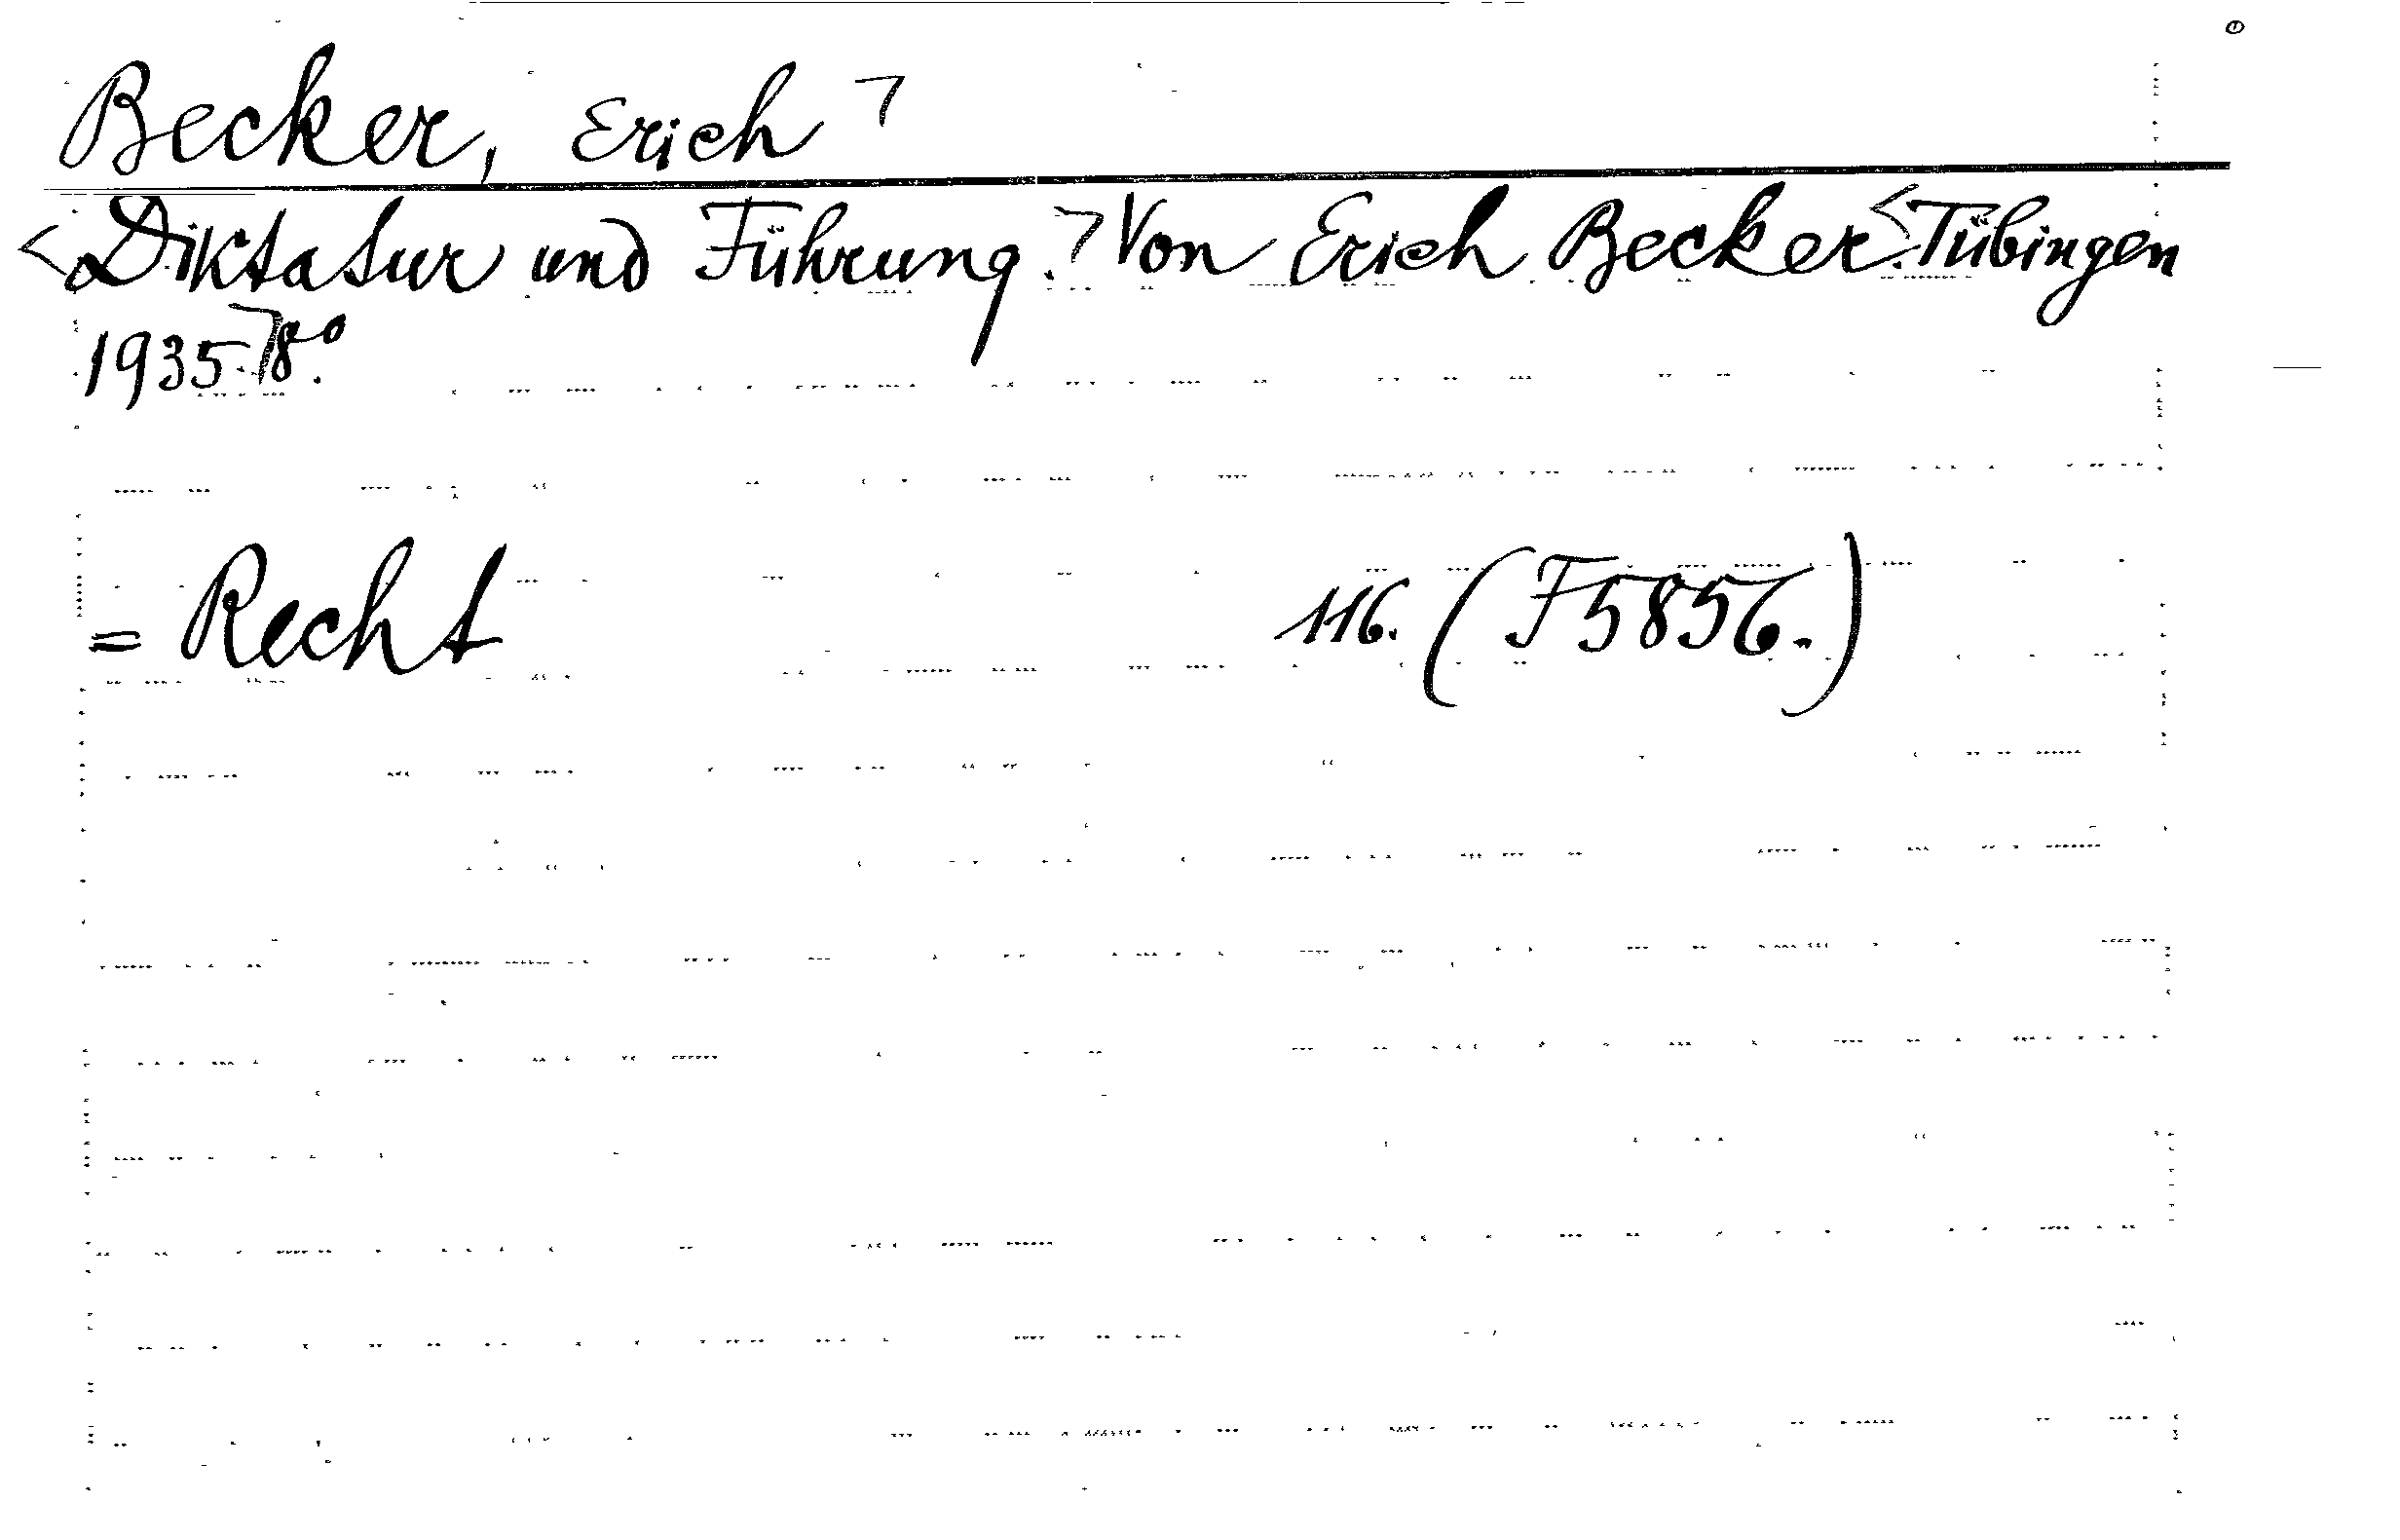 Becker, Erich ⁊
<Diktatur und Führung.⁊ Von Erich Becker.<Tübingen
1935.⁊ 8°.
= Recht 116. (F5856.)